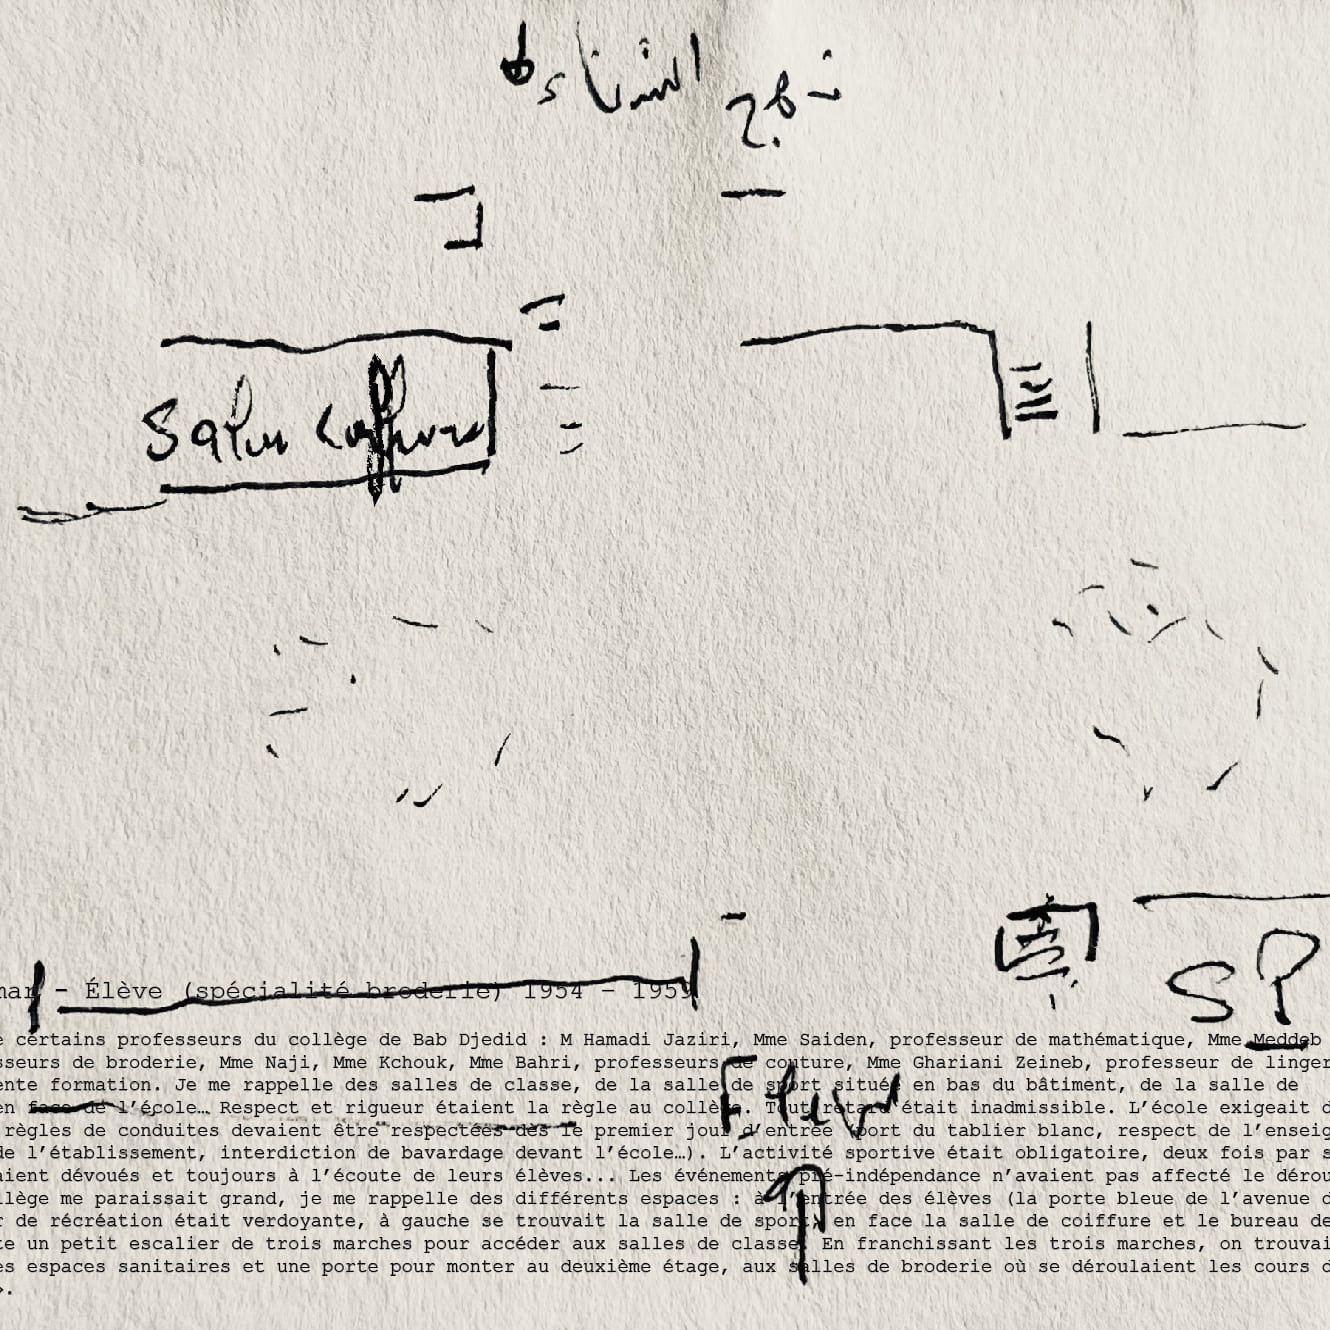 Salon Coiffure
SP
mar - Élève (spécialité broderie) 1954 – 1959
e certains professeurs du collège de Bab Djedid : M Hamadi Jaziri, Mme Saiden, professeur de mathématique, Mme Meddeb
sseurs de broderie, Mme Naji, Mme Kchouk, Mme Bahri, professeurs de couture, Mme Ghariani Zeineb, professeur de linger
ente formation. Je me rappelle des salles de classe, de la salle de sport située en bas du bâtiment, de la salle de
en face de l’école… Respect et rigueur étaient la règle au collège. Tout retard était inadmissible. L’école exigeait d
règles de conduites devaient être respectées dès le premier jour d’entrée (port du tablier blanc, respect de l’enseig
de l’établissement, interdiction de bavardage devant l’école…). L’activité sportive était obligatoire, deux fois par s
aient dévoués et toujours à l’écoute de leurs élèves... Les événements pré-indépendance n’avaient pas affecté le dérou
llège me paraissait grand, je me rappelle des différents espaces : à l’entrée des élèves (la porte bleue de l’avenue d
r de récréation était verdoyante, à gauche se trouvait la salle de sport, en face la salle de coiffure et le bureau de
te un petit escalier de trois marches pour accéder aux salles de classe. En franchissant les trois marches, on trouvai
es espaces sanitaires et une porte pour monter au deuxième étage, aux salles de broderie où se déroulaient les cours d
».
Elève